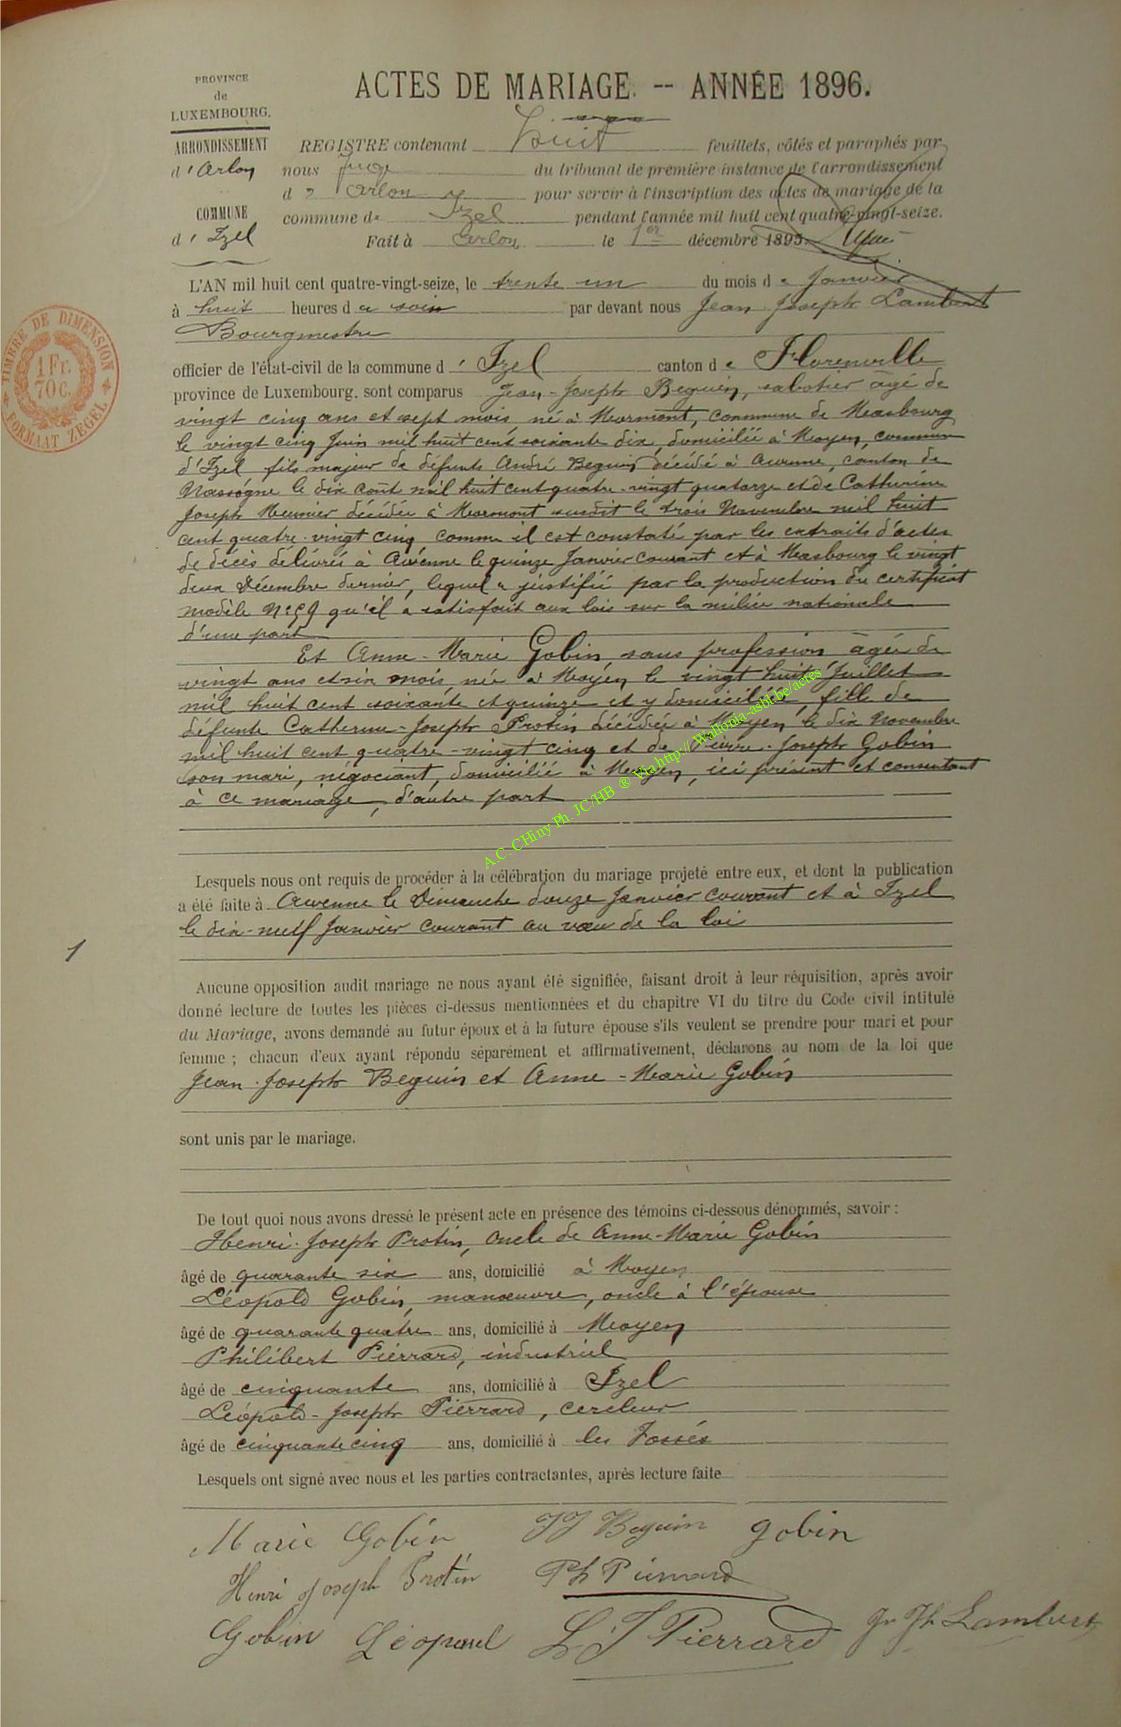 PROVINCE
de
LUXEMBOURG.
ARRONDISSEMENT
d'Arlon
COMMUNE
d'Izel
ACTES DE MARIAGE. -- ANNÉE 1896.
REGISTRE contenant huit feuillets, côtés et paraphés par
nous Juge du tribunal de première instance de l'arrondissement
d' Arlon pour servir à l'inscription des actes de mariage de la
commune d' Izel pendant l'année mil huit cent quatre-vingt-seize.
Fait à Arlon le 1er décembre 1895.
TIMBRE DE DIMENSION
1 Fr.
70 C.
FORMAAT ZEGEL
L'AN mil huit cent quatre-vingt-seize, le trente un du mois de Janvier
à huit heures du soir par devant nous Jean Joseph Lambert
Bourgmestre
officier de l'état-civil de la commune d'Izel canton de Florenville
province de Luxembourg. sont comparus Jean-Joseph Beguin, sabotier âgé de
vingt cinq ans et sept mois, né à Mormont, commune de Measbourg
le vingt cinq Juin mil huit cent soixante dix, domicilié à Moyen, commune
d'Izel fils majeur de défunts André Beguin décédé à Awenne, canton de
Nassogne le dix août mil huit cent quatre-vingt quatorze et de Catherine
Joseph Meunier décédée à Mormont susdit le trois Novembre mil huit
cent quatre-vingt cinq comme il est constaté par les extraits d'actes
de décès délivrés à Awenne le quinze Janvier courant et à Measbourg le vingt
deux Décembre dernier, lequel a justifié par la production du certificat
modèle N° 59 qu'il a satisfait aux lois sur la milice nationale
d'une part
Et Anne-Marie Gobin, sans profession, âgée de
vingt ans et six mois, née à Moyen le vingt huit Juillet
mil huit cent soixante et quinze et y domiciliée, fille de
défunte Catherine-Joseph Protin décédée à Moyen le dix Novembre
mil huit cent quatre-vingt cinq et de Pierre-Joseph Gobin
son mari, négociant, domicilié à Moyen, ici présent et consentant
à ce mariage, d'autre part
A.C. CHiny Ph. JC/HB ® Via http://Wallonia-asbl.be/actes
Lesquels nous ont requis de procéder à la célébration du mariage projeté entre eux, et dont la publication
a été faite à Awenne le Dimanche douze Janvier courant et à Izel
le dix-neuf Janvier courant au vœu de la loi
1
Aucune opposition audit mariage ne nous ayant été signifiée, faisant droit à leur réquisition, après avoir
donné lecture de toutes les pièces ci-dessus mentionnées et du chapitre VI du titre du Code civil intitulé
du Mariage, avons demandé au futur époux et à la future épouse s'ils veulent se prendre pour mari et pour
femme ; chacun d'eux ayant répondu séparément et affirmativement, déclarons au nom de la loi que
Jean-Joseph Beguin et Anne-Marie Gobin
sont unis par le mariage.
De tout quoi nous avons dressé le présent acte en présence des témoins ci-dessous dénommés, savoir :
Henri-Joseph Protin, oncle de Anne-Marie Gobin
âgé de quarante six ans, domicilié à Moyen
Léopold Gobin, manœuvre, oncle à l'épouse
âgé de quarante quatre ans, domicilié à Moyen
Philibert Piérrard, industriel
âgé de cinquante ans, domicilié à Izel
Léopold-Joseph Piérrard, cercleur
âgé de cinquante cinq ans, domicilié à les Fossés
Lesquels ont signé avec nous et les parties contractantes, après lecture faite
Marie Gobin JJ Beguin gobin
Henri Joseph Protin Ph Pierrard
Gobin Léopold L J Pierrard Jn Jh Lambert